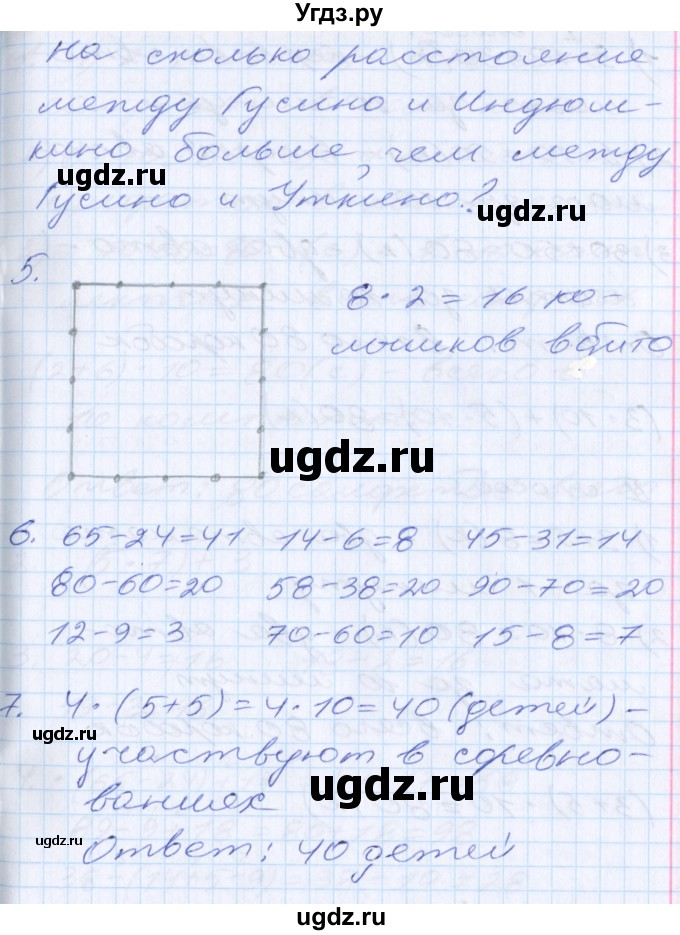 Угдз.ру
на сколько расстояние
между Гусино и Индюш-
кино больше, чем между
ugdz.ru ugdz.ru
Гусино и Уткино?
5.
8 · 2 = 16 ко-
лышков вбито
ugdz.ru
6. 65-24=41 14-6=8 45-31=14
80-60=20 58-38=20 90-70=20
12-9=3 70-60=10 15-8=7
7. 4 · (5+5)=4 · 10=40 (детей) -
участвуют в соревно-
ваниях
ugdz.ru
ugdz.ru
Ответ: 40 детей
ugdz.ru
ugdz.ru